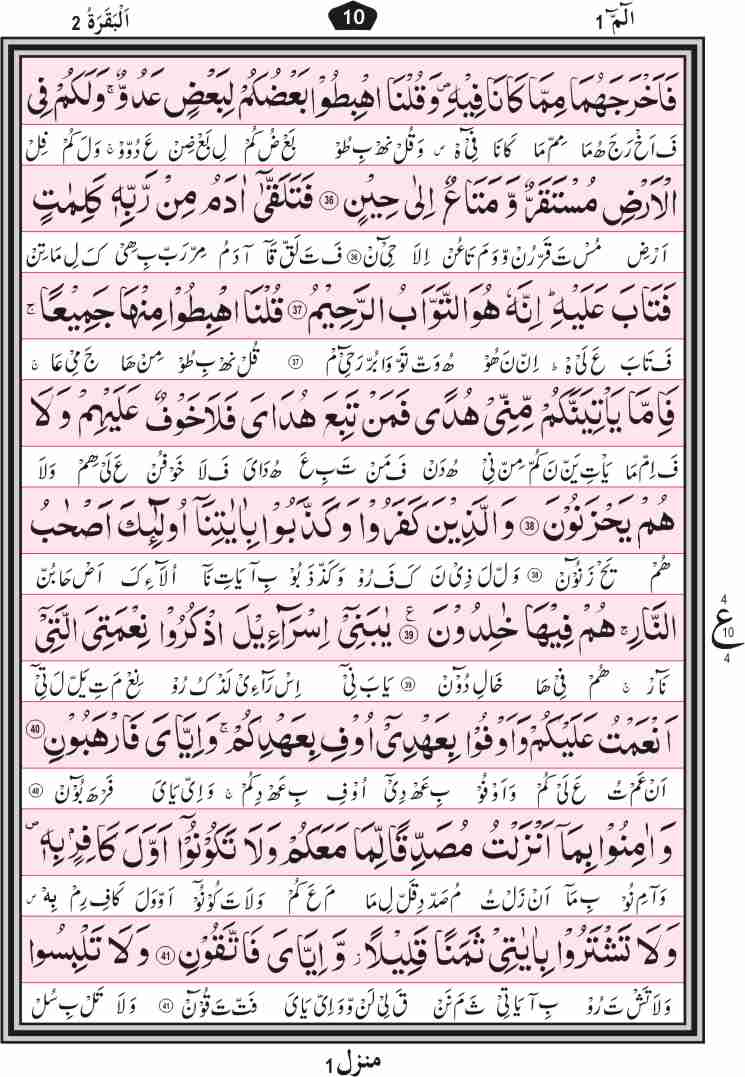 الٓمّٓ 1
10
اَلْبَقَرَةُ 2
فَاَخْرَجَهُمَا مِمَّا كَانَا فِيْهِ ۪ وَقُلْنَا اهْبِطُوْا بَعْضُكُمْ لِبَعْضٍ عَدُوٌّ ۚ وَلَكُمْ فِى
فَ اَخْ رَجَ هُمَا مِمْ مَا كَانَا فِىْٓ هْ وَ قُلْ نَهْ بِ طُوْ بَعْ ضُ كُمْ لِ بَعْ ضِنْ عَ دُوْوْ وَ لَ كُمْ فِلْ
الْاَرْضِ مُسْتَقَرٌّ وَّمَتَاعٌ اِلٰى حِيْنٍ ۝36 فَتَلَقّٰٓى اٰدَمُ مِنْ رَّبِّهٖ كَلِمٰتٍ
اَرْضِ مُسْ تَ قَرْ رُنْ وَّ وَ مَ تَاعُنْ اِلَا حِىْٓ نْ ۝36 فَ تَ لَقْ قَآ آدَمُ مِرْ رَبْ بِ هِىْ كَ لِ مَاتِنْ
فَتَابَ عَلَيْهِ ؕ اِنَّهٗ هُوَ التَّوَّابُ الرَّحِيْمُ ۝37 قُلْنَا اهْبِطُوْا مِنْهَا جَمِيْعًا ۚ
فَ تَابَ عَ لَىْٓ هْ ؕ اِنْ نَ هُوْ هُ وَتْ تَوْ وَا بُرْ رَ حِىْٓ مْ ۝37 قُلْ نَهْ بِ طُوْ مِنْ هَا جَ مِىْ عَا
فَاِمَّا يَاْتِيَنَّكُمْ مِّنِّىْ هُدًى فَمَنْ تَبِعَ هُدَاىَ فَلَا خَوْفٌ عَلَيْهِمْ وَلَا
فَ اِمْ مَا يَاْتِ يَنْ نَ كُمْ مِنْ نِىْ هُ دَنْ فَ مَنْ تَ بِ عَ هُ دَاىَ فَ لَا خَوْ فُنْ عَ لَىْ هِمْ وَلَا
هُمْ يَحْزَنُوْنَ ۝38 وَالَّذِيْنَ كَفَرُوْا وَكَذَّبُوْا بِاٰيٰتِنَآ اُولٰٓئِكَ اَصْحٰبُ
هُمْ يَحْ زَ نُوْٓنْ ۝38 وَ لْ لَ ذِىْ نَ كَ فَ رُوْ وَ كَذْ ذَ بُوْ بِ آ يَاتِ نَآ اُلَآءِ كَ اَصْ حَابُنْ
النَّارِ ۚ هُمْ فِيْهَا خٰلِدُوْنَ ۝39 يٰبَنِىْٓ اِسْرَآءِيْلَ اذْكُرُوْا نِعْمَتِىَ الَّتِىْٓ
نَآرْ هُمْ فِىْ هَا خَالِ دُوْٓنْ ۝39 يَابَ نِىْٓ اِسْ رَآءِىْ لَذْ كُ رُوْ نِعْ مَ تِ يَلْ لَ تِىْٓ
ع
4
10
4
اَنْعَمْتُ عَلَيْكُمْ وَاَوْفُوْا بِعَهْدِىْٓ اُوْفِ بِعَهْدِكُمْ ۚ وَاِيَّاىَ فَارْهَبُوْنِ ۝40
اَنْ عَمْ تُ عَ لَىْ كُمْ وَ اَوْ فُوْ بِ عَهْ دِىْٓ اُوْفِ بِ عَهْ دِكُمْ وَ اِىْ يَاىَ فَرْهَ بُوْٓنْ ۝40
وَاٰمِنُوْا بِمَآ اَنْزَلْتُ مُصَدِّقًا لِّمَا مَعَكُمْ وَلَا تَكُوْنُوْٓا اَوَّلَ كَافِرٍۭ بِهٖ ۪
وَآمِ نُوْ بِ مَآ اَنْ زَلْ تُ مُ صَدْ دِ قَلْ لِ مَا مَ عَ كُمْ وَلَا تَ كُوْنُوْٓ اَوْ وَلَ كَافِ رِمْ بِهْ
وَلَا تَشْتَرُوْا بِاٰيٰتِىْ ثَمَنًا قَلِيْلًا ۡ وَّاِيَّاىَ فَاتَّقُوْنِ ۝41 وَلَا تَلْبِسُوا
وَلَا تَشْ تَ رُوْ بِ آ يَاتِىْ ثَ مَ نَنْ قَ لِىْ لَنْ وَّ وَ اِىْ يَاىَ فَتْ تَ قُوْٓنْ ۝41 وَلَا تَلْ بِ سُلْ
منزل 1